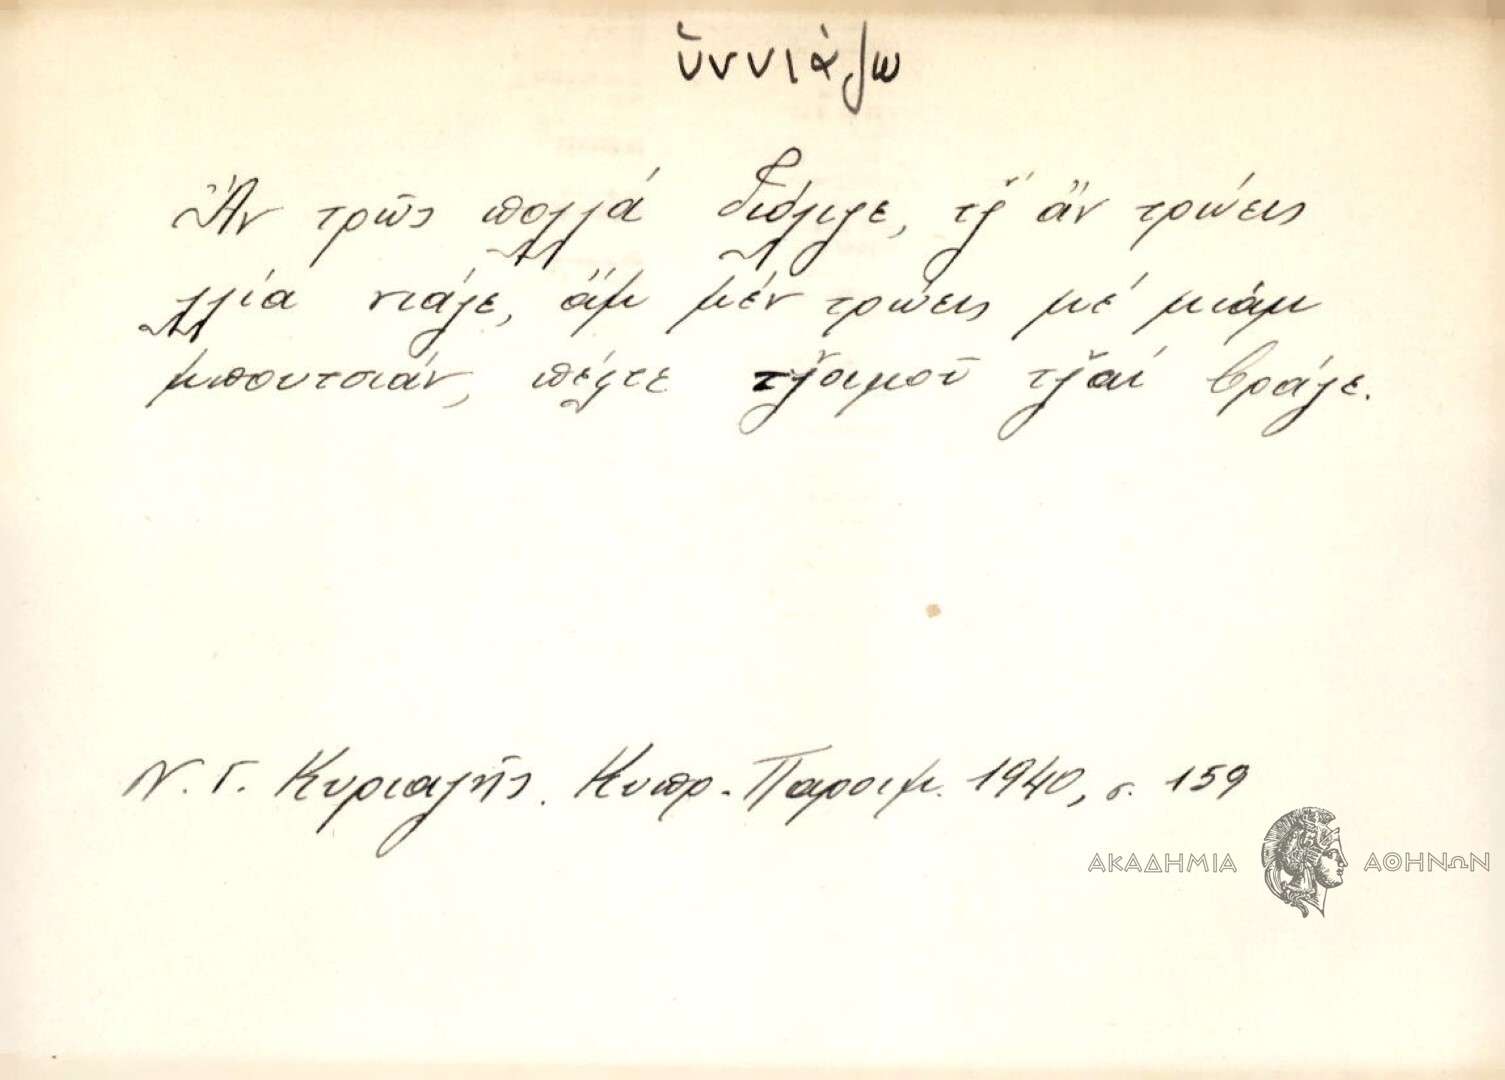 ὑννιάζω
Ἄν τρῶς πολλά διόλιζε, τζ̌' ἄν τρώεις
λλία νιάζε, ἄμ μέν τρώεις μέ μιάμ
μπουτσιάν, πέφτε τζ̌οιμοῦ τζ̌αί βράζε.
Ν. Γ. Κυριαζῆς. Κυπρ. Παροιμ. 1940, σ. 159
ΑΚΑΔΗΜΙΑ ΑΘΗΝΩΝ